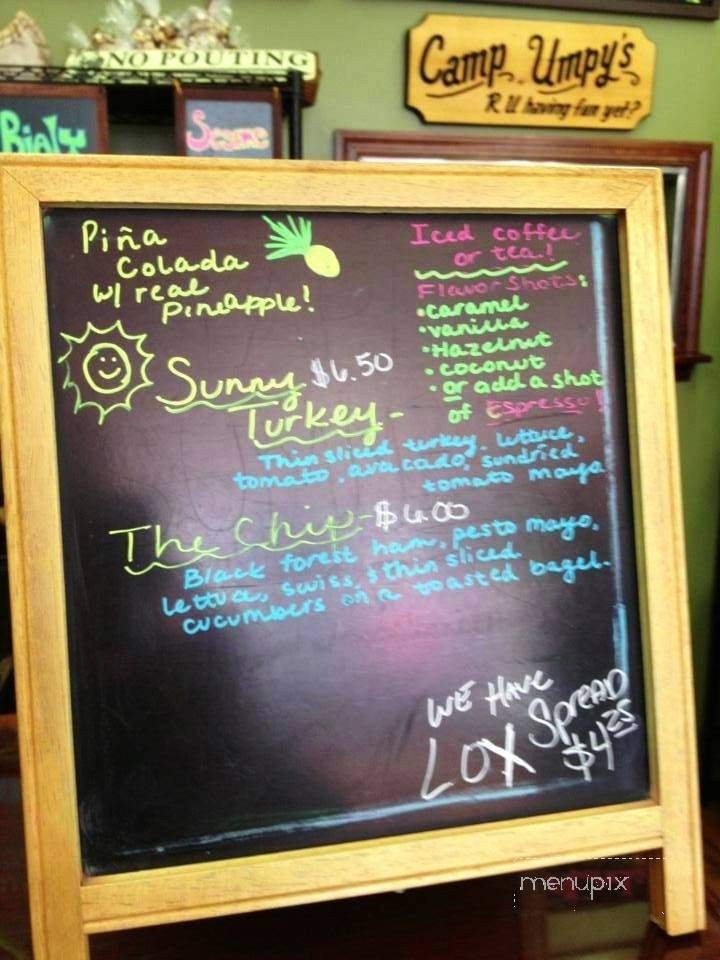 NO POUTING
Camp Umpy's
R U having fun yet?
Bialy
Sesame
Piña
Colada
w/ real
Pineapple!
Iced coffee
or tea!
Flavor Shots:
• caramel
• vanilla
• Hazelnut
• coconut
• or add a shot
of Espresso!
Sunny $6.50
Turkey -
Thin sliced turkey, lettuce,
tomato, avacado, sundried
tomato mayo
The Chip - $6.00
Black forest ham, pesto mayo,
lettuce, swiss, & thin sliced
cucumbers on a toasted bagel.
WE HAVE
LOX SPREAD
$4.25
menupix